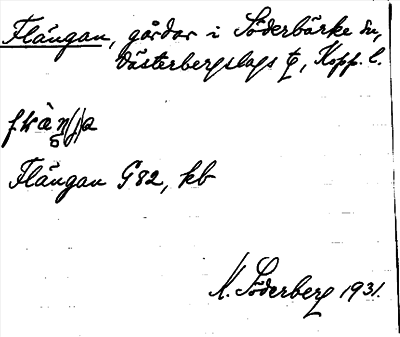 Flängan, gårdar i Söderbärke sn,
Västerbergslags tg, Kopp. l.
Flängan G82, kb
N. Söderberg 1931.